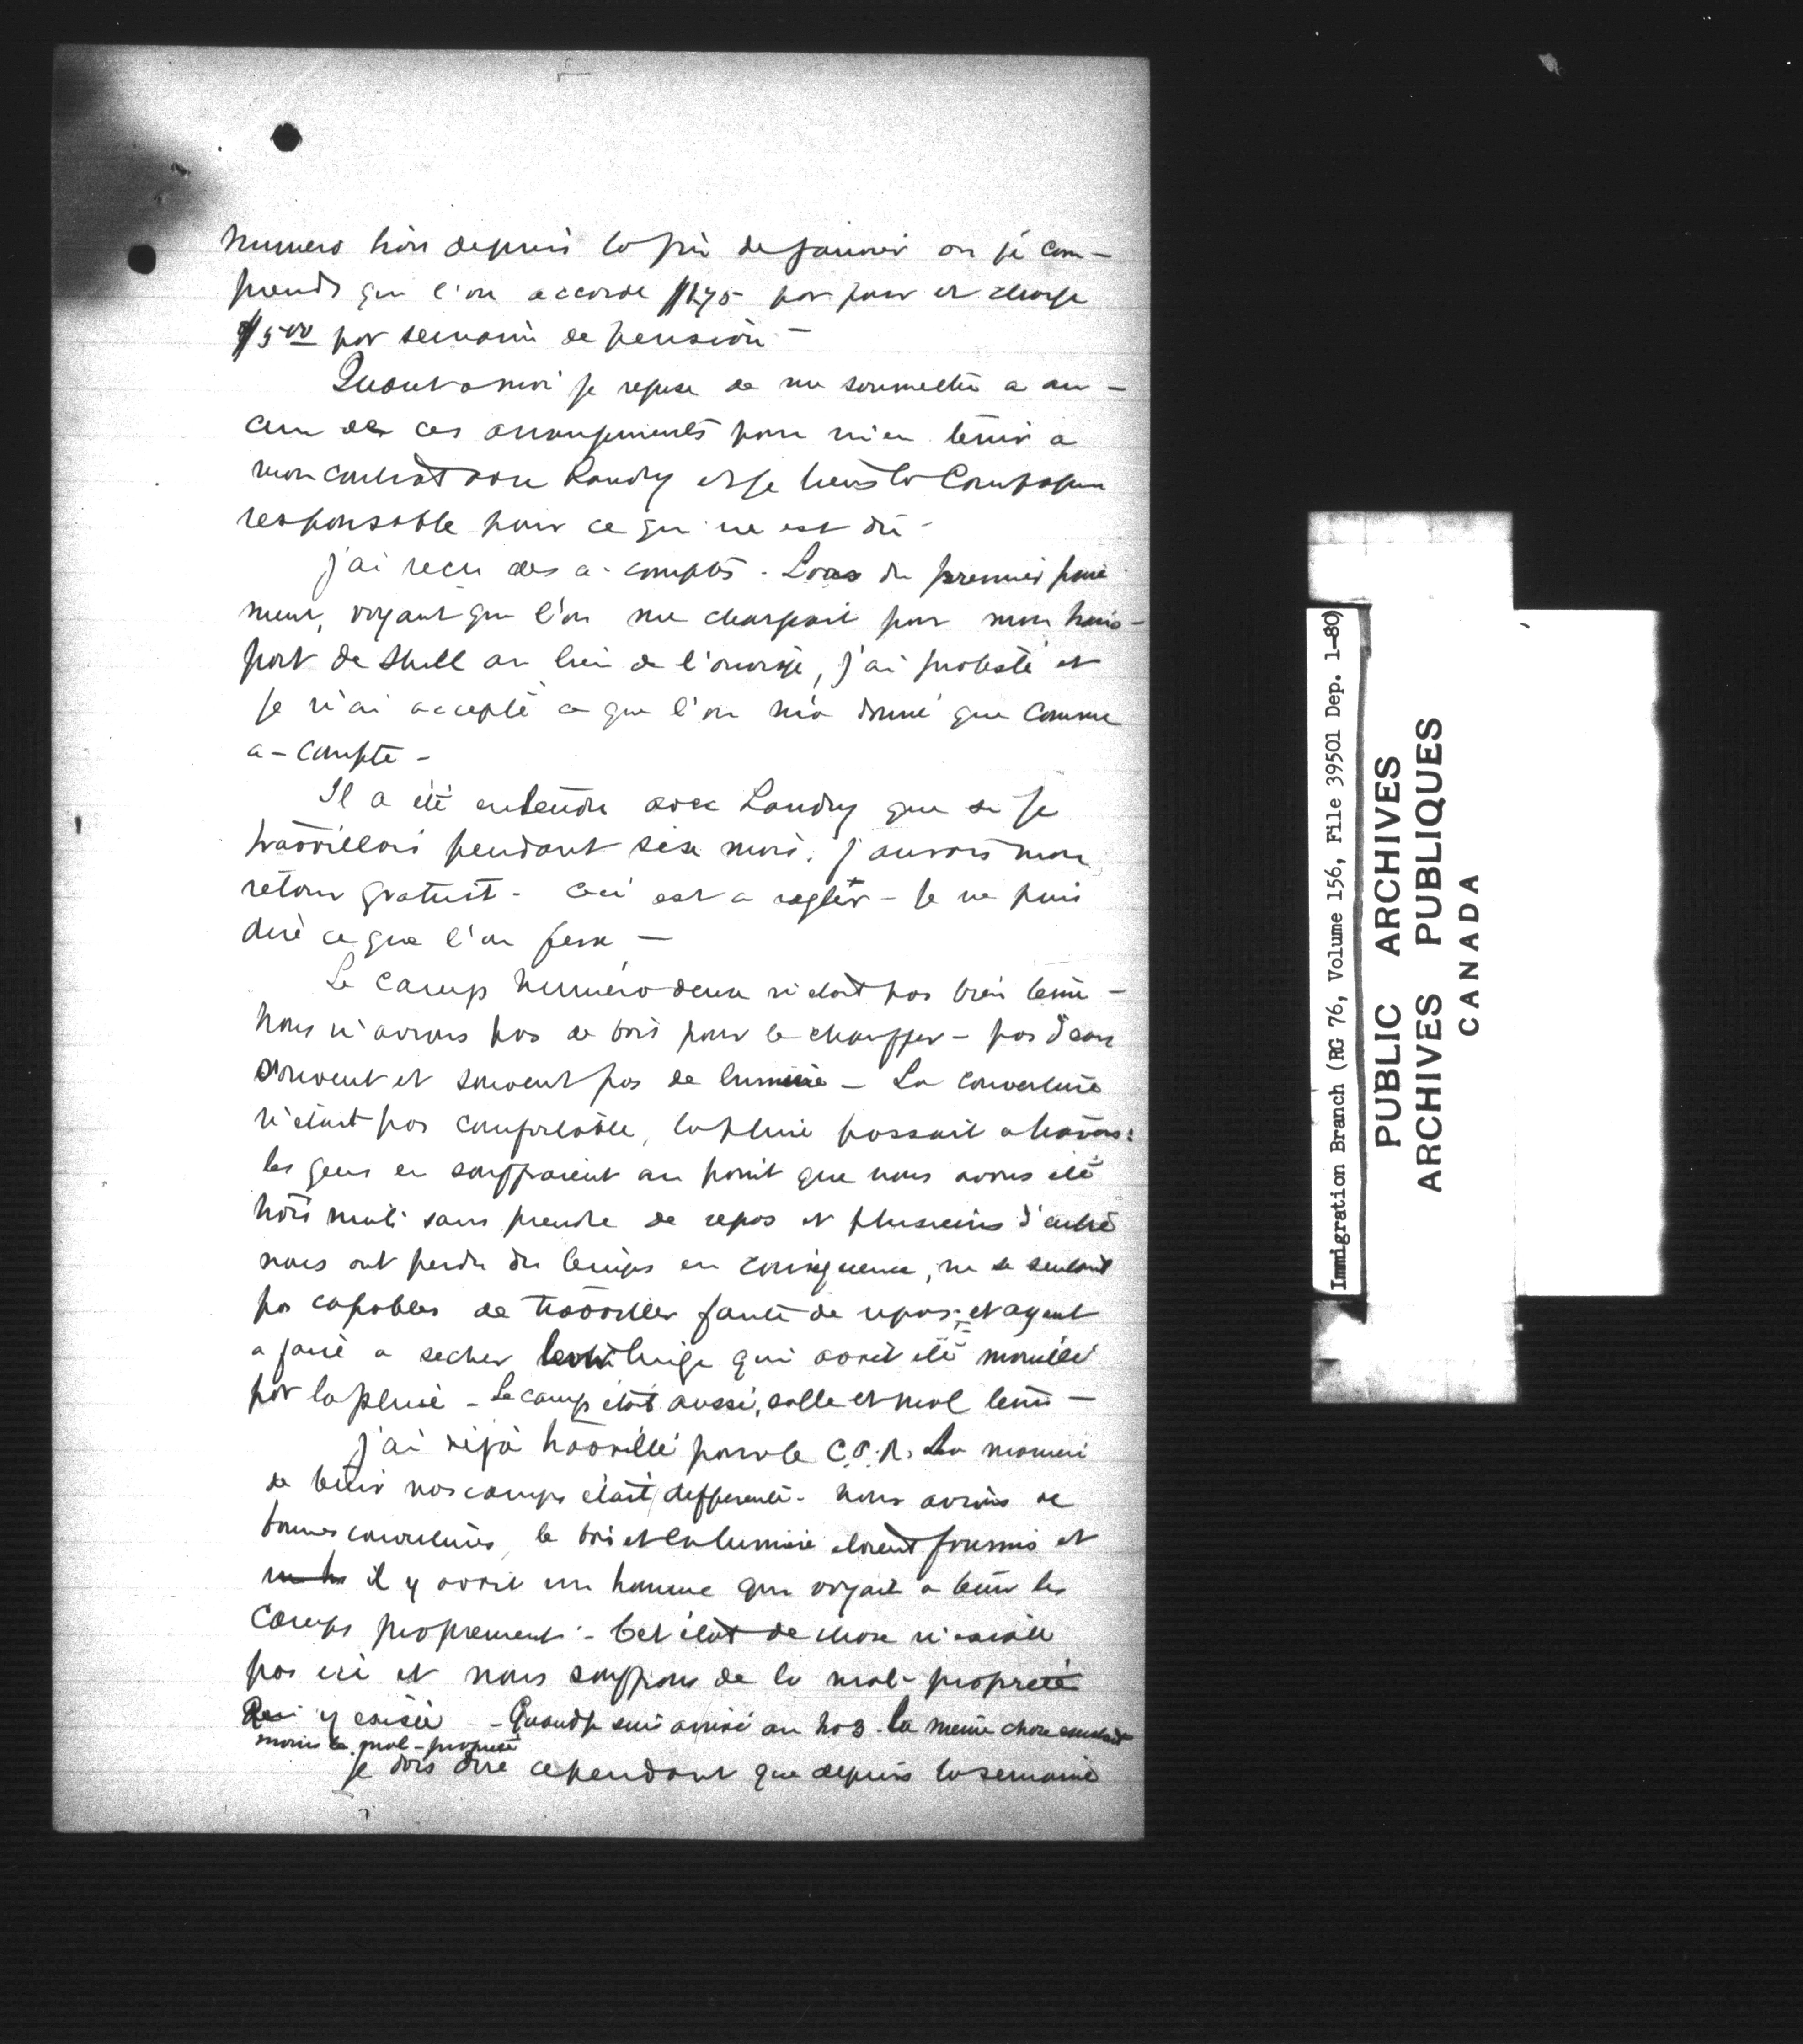 numero trois depuis la fin de janvier ou je com-
prends que l'on accorde $1.75 par jour et charge
$5.00 par semaine de pension -
Quant a moi je refuse de me soumettre a au-
cun de ces arrangements pour m'en tenir a
mon contrat avec Landry et je tiens la Compagnie
responsable pour ce qui me est dû -
J'ai recu des a-comptes. Lors du premier paie
ment, voyant que l'on me chargeait pour mon trans-
port de Shell au lieu de l'ouvrage, j'ai protesté et
je n'ai accepté ce que l'on m'a donné que comme
a-compte -
Il a été entendu avec Landry que si je
travaillais pendant six mois, j'aurais mon
retour gratuit - Ceci est a regler - Je ne puis
dire ce que l'on fera -
Le camp numéro deux n'etait pas bien tenu -
Nous n'avions pas de bois pour le chauffer - pas d'eau
souvent et souvent pas de lumière - La couverture
n'était pas confortable, la pluie passait a travers:
les gens en souffraient au point que nous avons été
trois nuits sans prendre de repos et plusieurs d'entre
nous ont perdu du temps en consequence, ne se sentant
pas capables de travailler faute de repos; et ayant
a faire a secher leur linge qui avait été mouillé
par la pluie - Le camp était aussi, salle et mal tenu -
J'ai déjà travaillé pour le C.P.R. La maniere
de tenir nos camps était differente. Nous avions de
bonnes couvertures, le bois et la lumière etaient fournis et
il y avait un homme qui voyait a tenir les
camps proprement - Cet état de chose n'existe
pas ici et nous souffrons de la mal-propreté
Qui y existe - Quand je suis arrivé au no 3 la même chose existait
moins la mal-propreté
Je dois dire cependant que depuis la semaine
Immigration Branch (RG 76, Volume 156, File 39501 Dep. 1-80)
PUBLIC ARCHIVES
ARCHIVES PUBLIQUES
CANADA